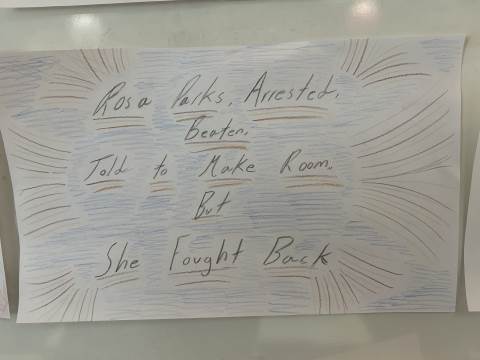 Rosa Parks. Arrested.
Beaten.
Told to Make Room.
But
She Fought Back